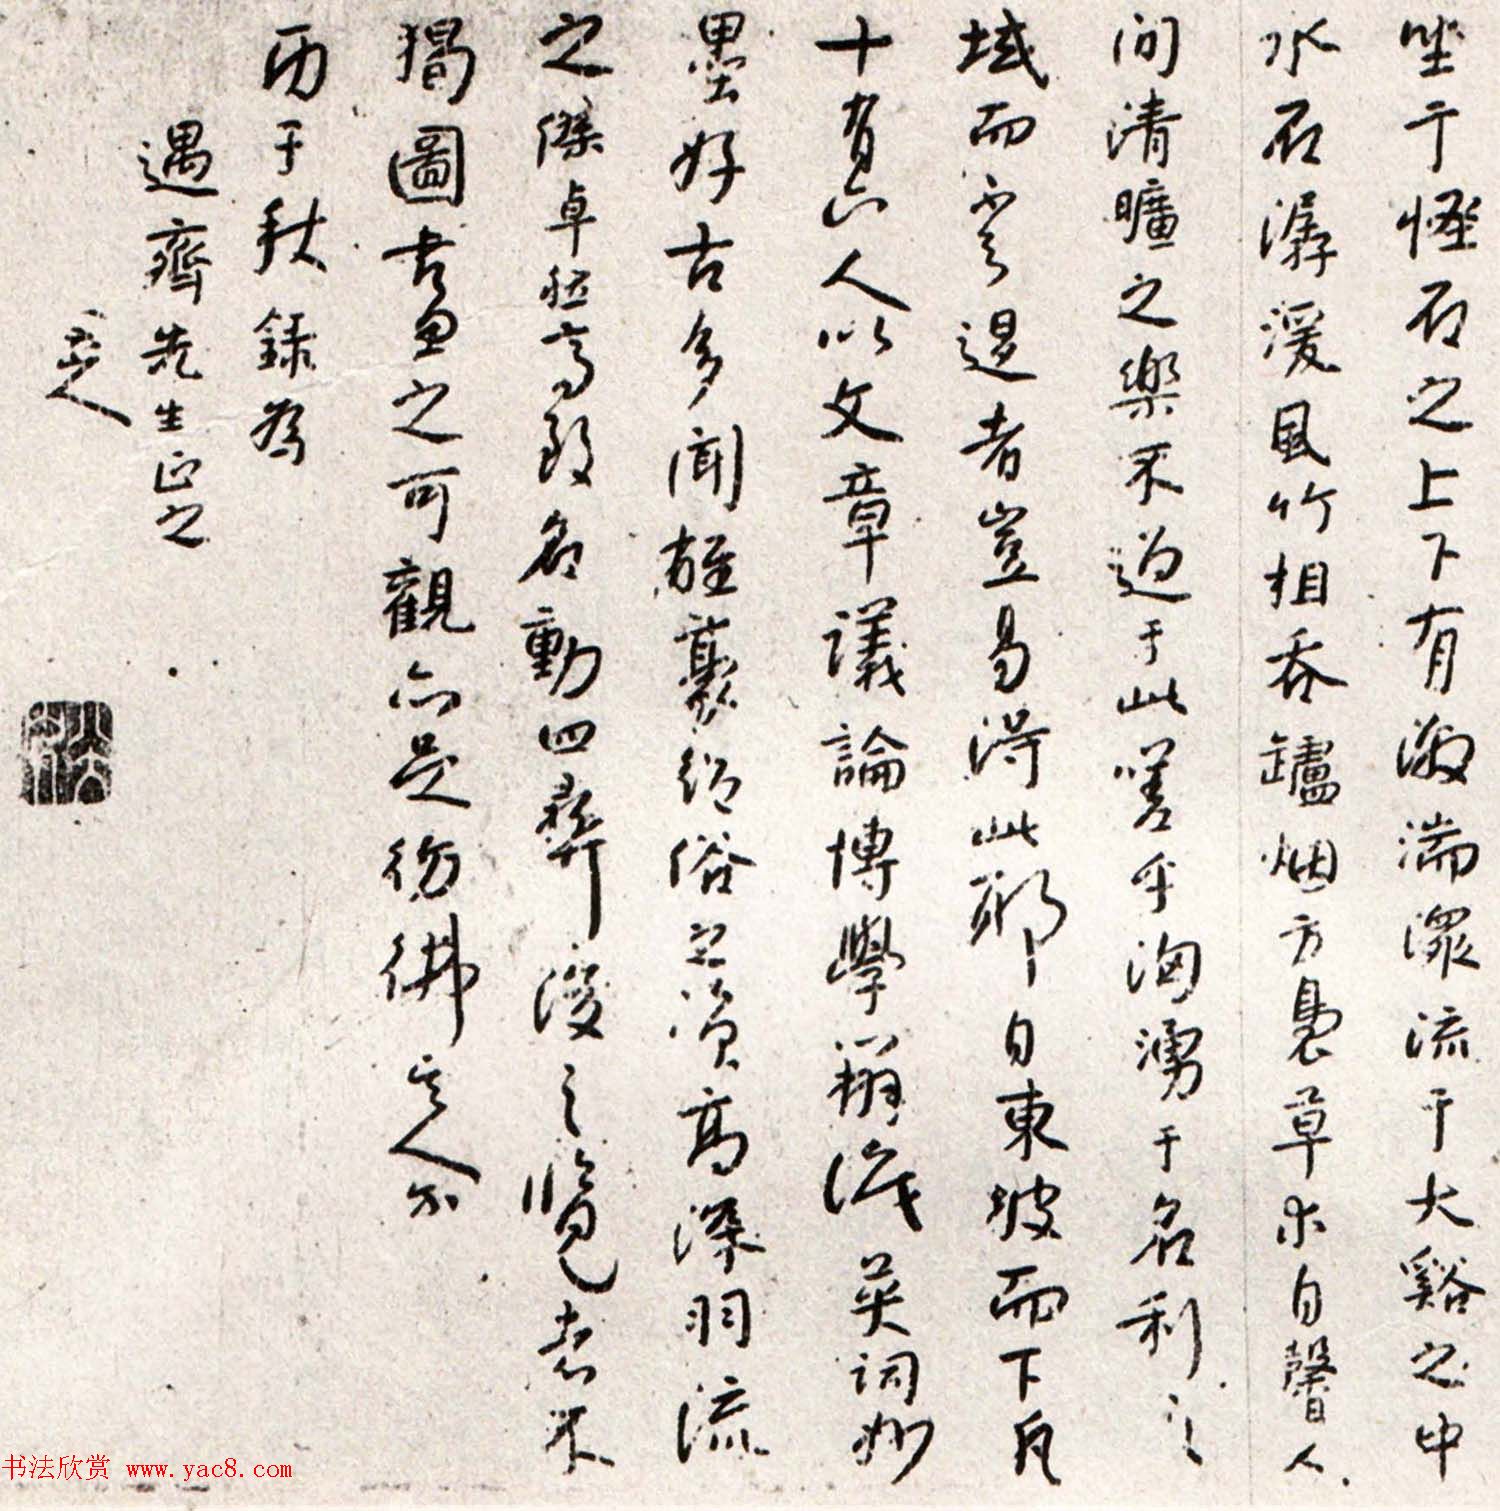 坐于怪石之上下有激湍潀流于大谿之中
水石潺湲風竹相吞罏烟方裊草木自馨人
间清曠之樂不過于此嗟乎洶湧于名利之
域而不 退者豈易得此耶自東坡而下凡
十有六人以文章議論博學辨識英詞妙
墨好古多聞雄豪絕俗之資高深羽流
之傑卓然高致名動四彝後之覽者不
獨圖畫之可觀亦足彷彿其人尔
丙于秋錄為
遇齋先生正之
八大山人
书法欣赏 www.yac8.com